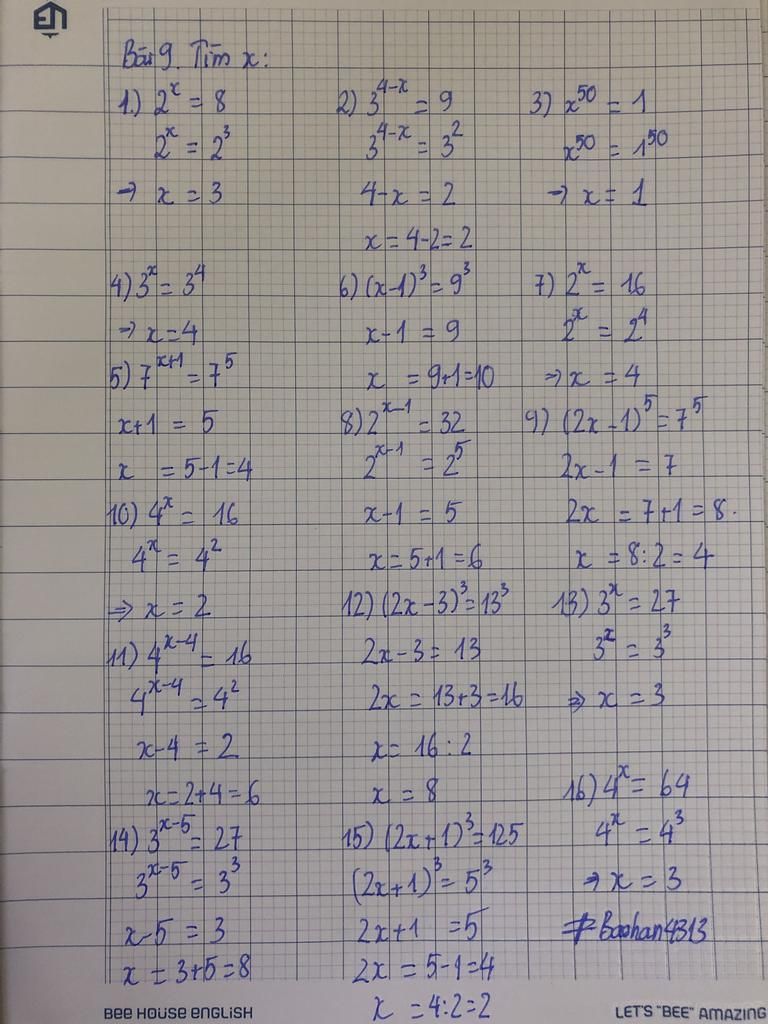 Bài 9. Tìm x:
1.) 2^x = 8
2^x = 2^3
→ x = 3
2) 3^{4-x} = 9
3^{4-x} = 3^2
4-x = 2
x = 4-2=2
3) x^{50} = 1
x^{50} = 1^{50}
→ x = 1
4) 3^x = 3^4
→ x = 4
5) 7^{x+1} = 7^5
x+1 = 5
x = 5-1=4
6) (x-1)^3 = 9^3
x-1 = 9
x = 9+1=10
7) 2^x = 16
2^x = 2^4
⇒ x = 4
8) 2^{x-1} = 32
2^{x-1} = 2^5
x-1 = 5
x = 5+1=6
9) (2x-1)^5 = 7^5
2x-1 = 7
2x = 7+1=8.
x = 8:2=4
10) 4^x = 16
4^x = 4^2
⇒ x = 2
11) 4^{x-4} = 16
4^{x-4} = 4^2
x-4 = 2
x=2+4=6
12) (2x-3)^3 = 13^3
2x-3 = 13
2x = 13+3=16
x = 16:2
x = 8
13) 3^x = 27
3^x = 3^3
⇒ x = 3
14) 3^{x-5} = 27
3^{x-5} = 3^3
x-5 = 3
x = 3+5=8
15) (2x+1)^3 = 125
(2x+1)^3 = 5^3
2x+1 = 5
2x = 5-1=4
x = 4:2=2
16) 4^x = 64
4^x = 4^3
→ x = 3
#Baohan4313
BEE HOUSE ENGLISH
LET'S "BEE" AMAZING